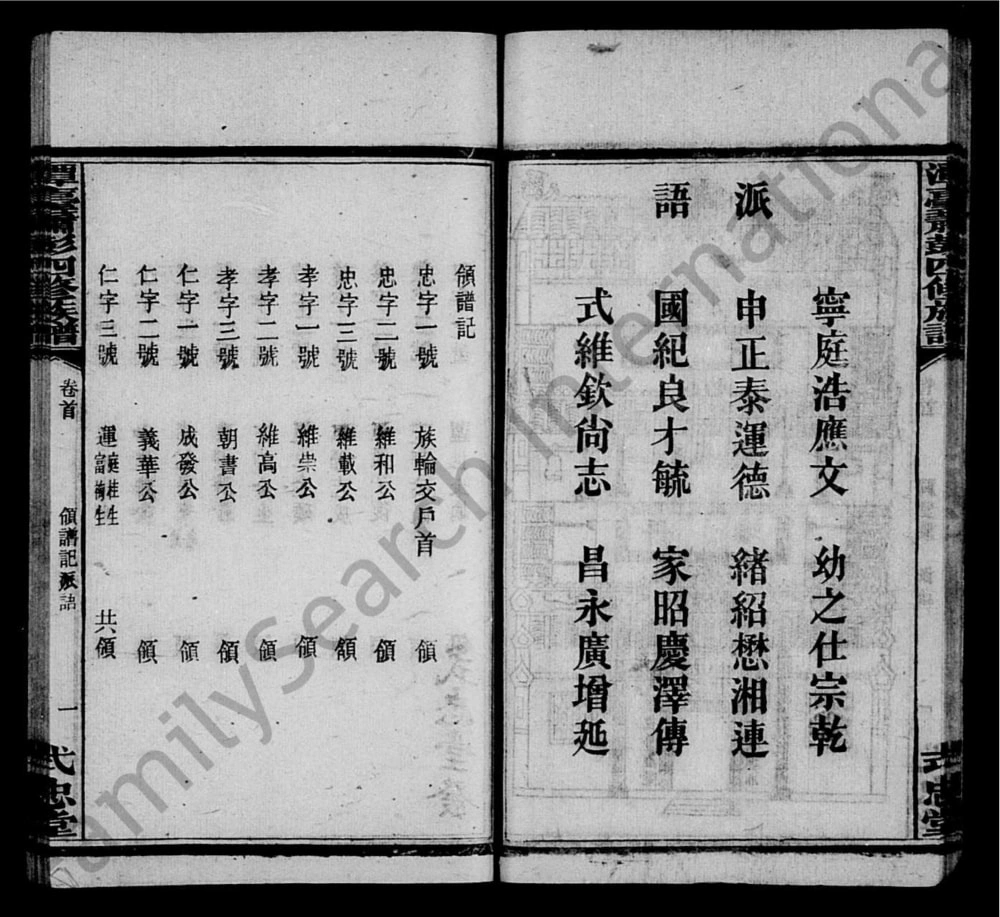 派語
寧庭浩應文　幼之仕宗乾
申正泰運德　緒紹懋湘連
國紀良才毓　家昭慶澤傳
式維欽尙志　昌永廣增延
領譜記
忠字一號　族輪交戶首　領
忠字二號　維和公　領
忠字三號　維載公　領
孝字一號　維崇公　領
孝字二號　維高公　領
孝字三號　朝書公　領
仁字一號　成發公　領
仁字二號　義華公　領
仁字三號　運庭桂生富梅生　共領
潭臺蕭彭四修族譜
卷首　領譜記派語　一
式忠堂
潭臺蕭彭四修族譜
式忠堂
FamilySearch International